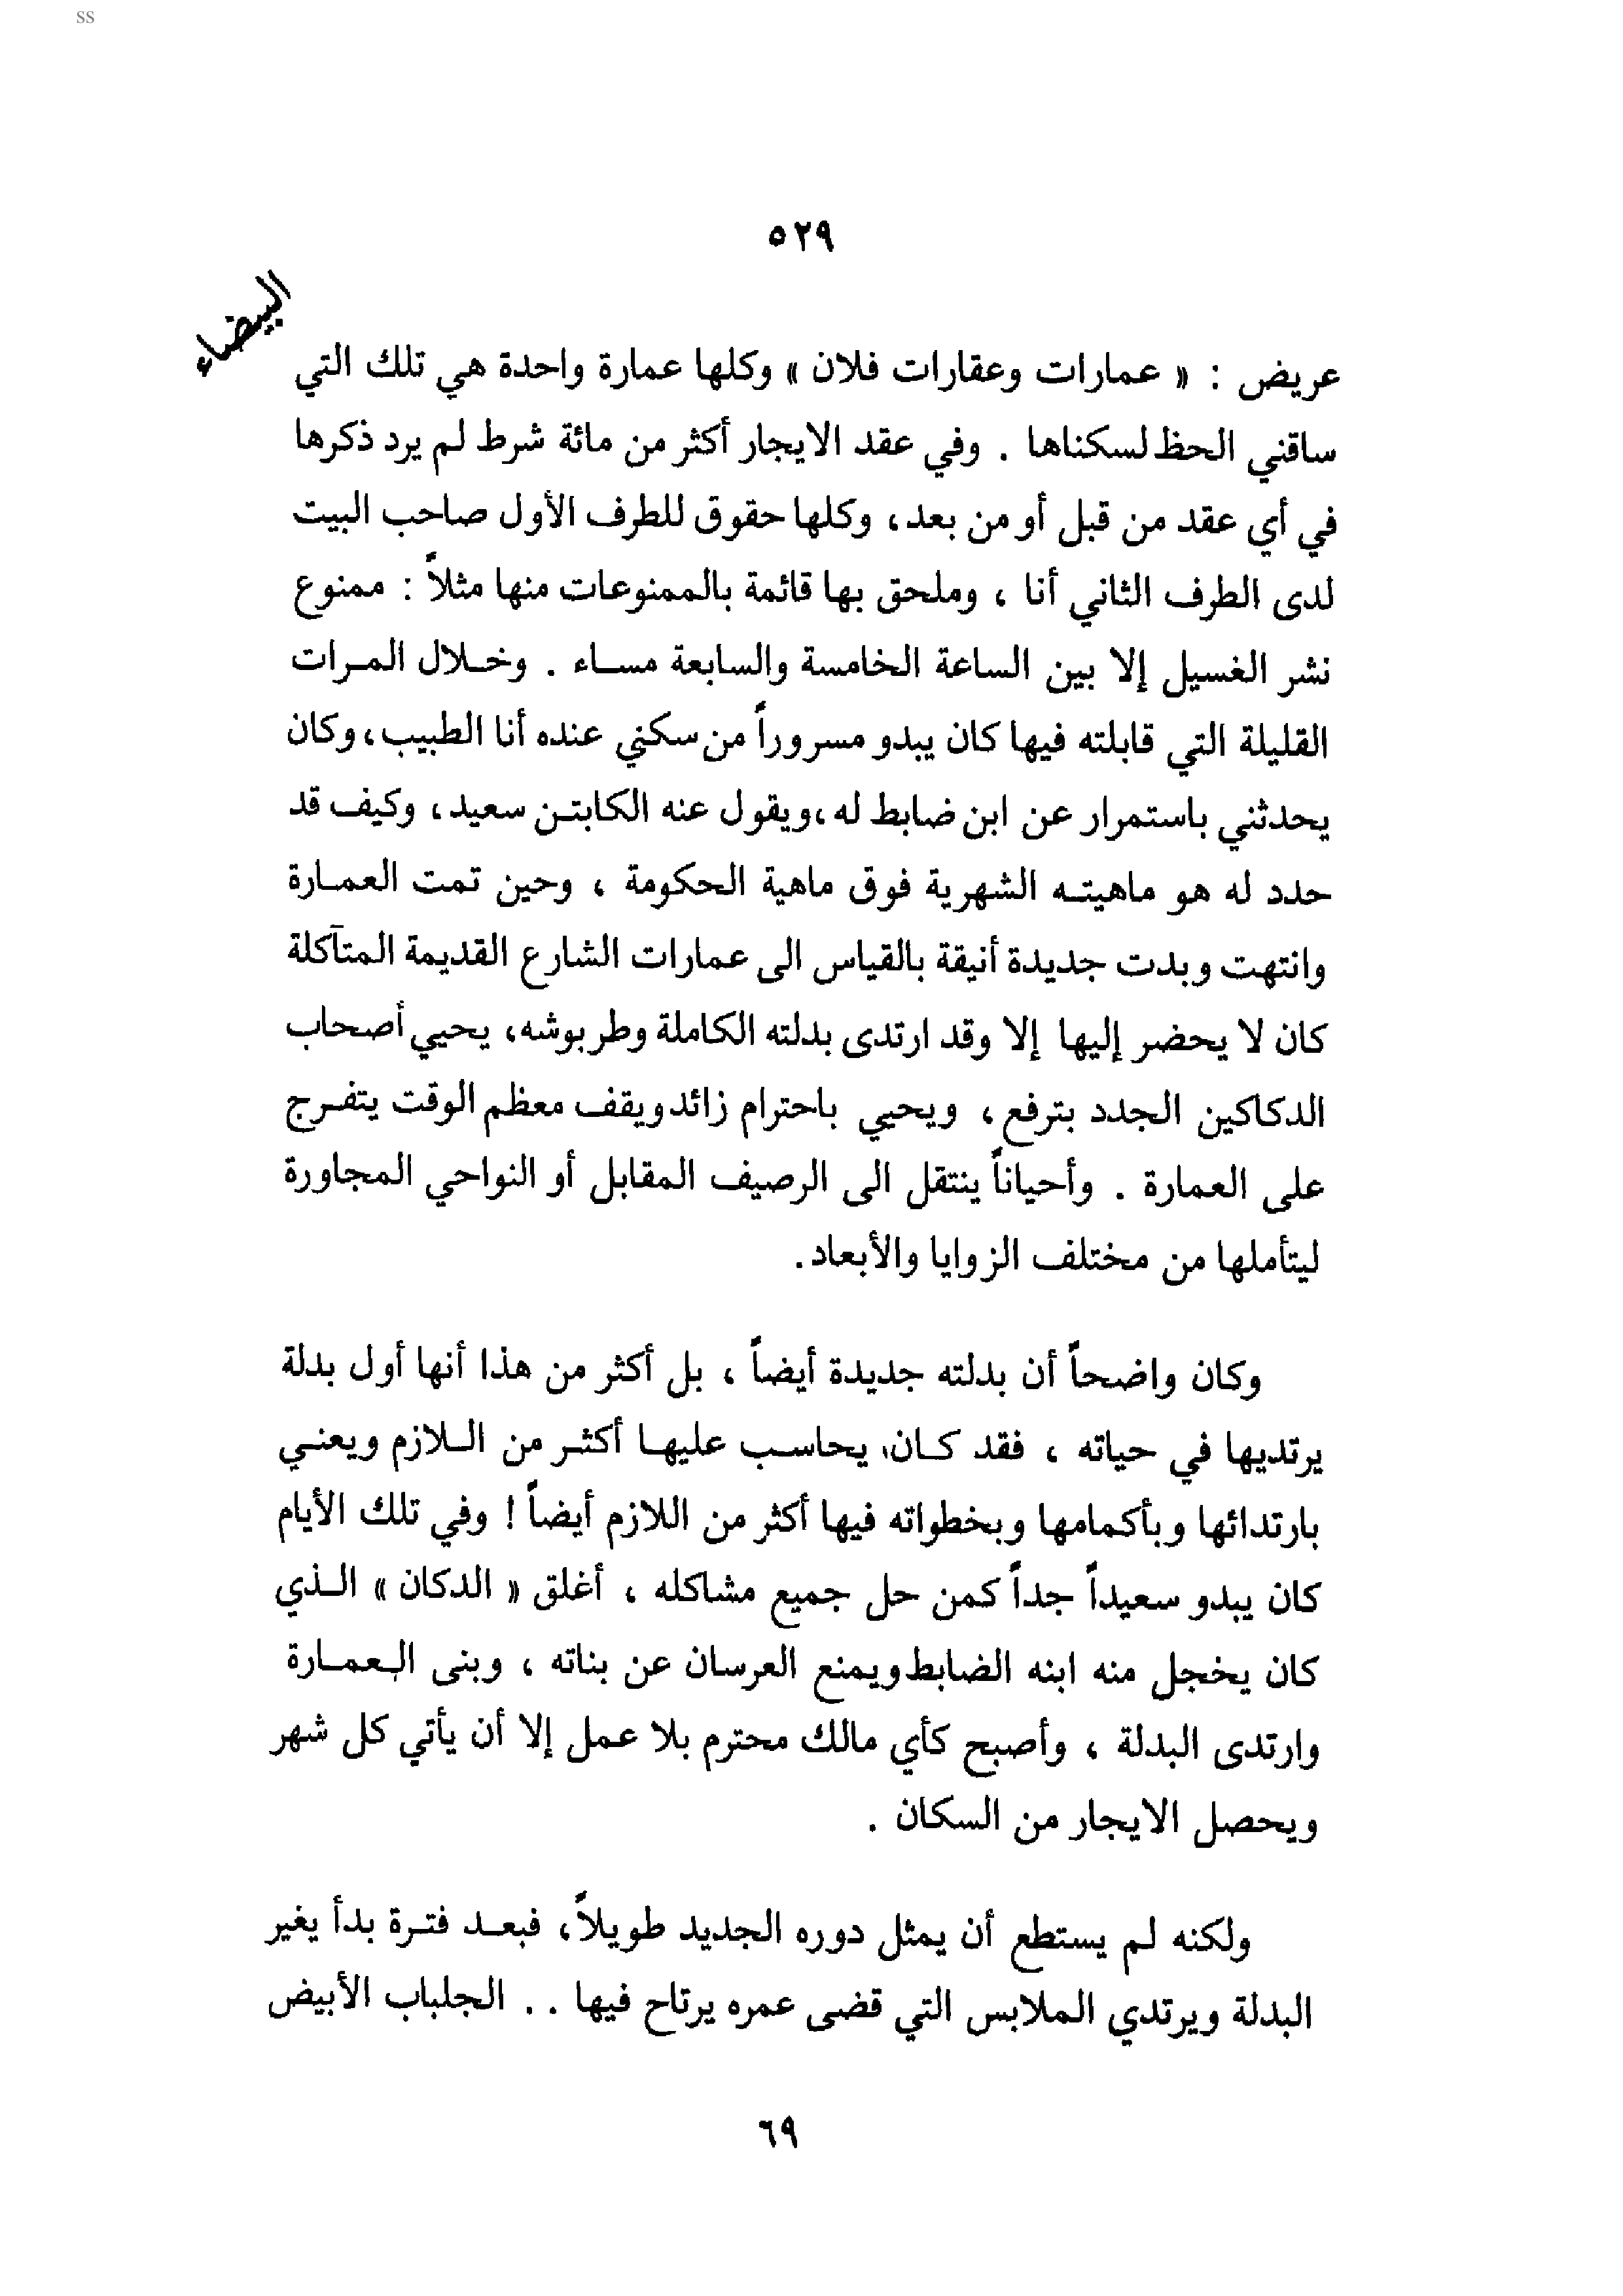 SS
٥٢٩
البيضاء
عريض : « عمارات وعقارات فلان » وكلها عمارة واحدة هي تلك التي
ساقني الحظ لسكناها . وفي عقد الايجار أكثر من مائة شرط لم يرد ذكرها
في أي عقد من قبل أو من بعد، وكلها حقوق للطرف الأول صاحب البيت
لدى الطرف الثاني أنا ، وملحق بها قائمة بالممنوعات منها مثلاً : ممنوع
نشر الغسيل إلا بين الساعة الخامسة والسابعة مساء . وخلال المرات
القليلة التي قابلته فيها كان يبدو مسروراً من سكني عنده أنا الطبيب، وكان
يحدثني باستمرار عن ابن ضابط له، ويقول عنه الكابتن سعيد، وكيف قد
حدد له هو ماهيته الشهرية فوق ماهية الحكومة ، وحين تمت العمارة
وانتهت وبدت جديدة أنيقة بالقياس الى عمارات الشارع القديمة المتآكلة
كان لا يحضر إليها إلا وقد ارتدى بدلته الكاملة وطربوشه، يحيي أصحاب
الدكاكين الجدد بترفع، ويحيي باحترام زائد ويقف معظم الوقت يتفرج
على العمارة . وأحياناً ينتقل الى الرصيف المقابل أو النواحي المجاورة
ليتأملها من مختلف الزوايا والأبعاد.
وكان واضحاً أن بدلته جديدة أيضاً ، بل أكثر من هذا أنها أول بدلة
يرتديها في حياته ، فقد كان يحاسب عليها أكثر من اللازم ويعني
بارتدائها وبأكمامها وبخطواته فيها أكثر من اللازم أيضاً ! وفي تلك الأيام
كان يبدو سعيداً جداً كمن حل جميع مشاكله ، أغلق « الدكان » الذي
كان يخجل منه ابنه الضابط ويمنع العرسان عن بناته ، وبنى العمارة
وارتدى البدلة ، وأصبح كأي مالك محترم بلا عمل إلا أن يأتي كل شهر
ويحصل الايجار من السكان .
ولكنه لم يستطع أن يمثل دوره الجديد طويلاً، فبعد فترة بدأ يغير
البدلة ويرتدي الملابس التي قضى عمره يرتاح فيها . . الجلباب الأبيض
٦٩